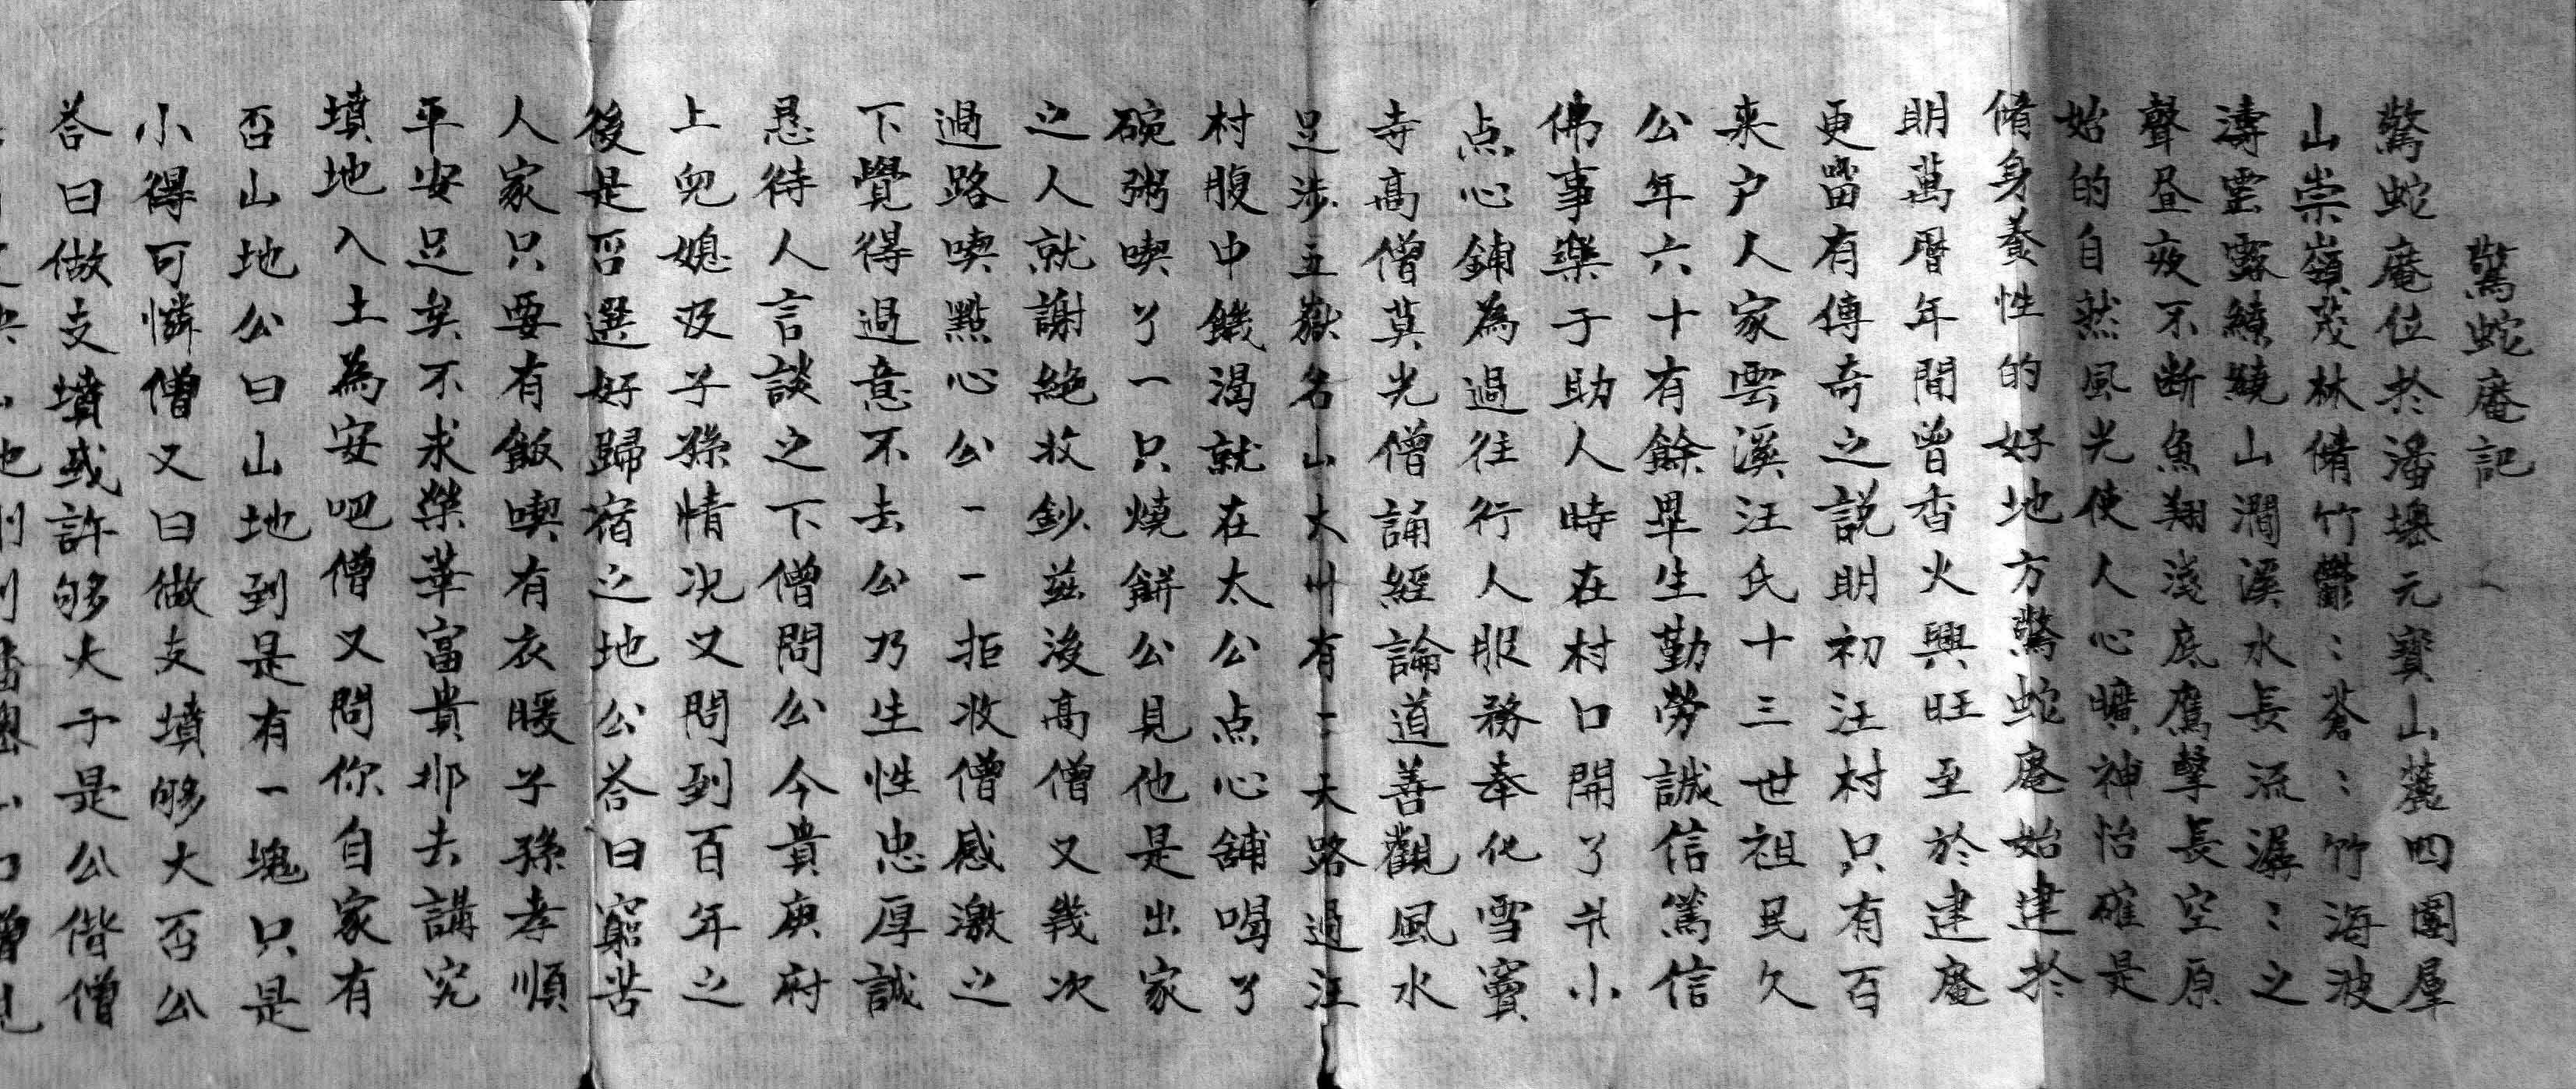 驚蛇庵記
驚蛇庵位於潘墺元寶山麓四圍羣
山崇嶺茂林脩竹鬱：：蒼：：竹海波
濤雲露繚繞山澗溪水長流潺：：之
聲昼夜不断魚翔淺底鷹擊長空原
始的自然風光使人心曠神怡確是
脩身養性的好地方驚蛇庵始建於
明萬曆年間曾香火興旺至於建庵
更畱有傳奇之説明初汪村只有百
来户人家雲溪汪氏十三世祖民久
公年六十有餘畢生勤勞誠信篤信
佛事樂于助人時在村口開了爿小
点心鋪為過往行人服務奉化雪竇
寺高僧莫光僧誦經論道善觀風水
足涉五嶽名山大川有一天路過汪
村腹中饑渴就在太公点心舖喝了
碗粥喫了一只燒餅公見他是出家
之人就謝絶收鈔兹後高僧又幾次
過路喫點心公一一拒收僧感激之
下覺得過意不去公乃生性忠厚誠
恳待人言談之下僧問公今貴庚府
上兒媳及子孫情况又問到百年之
後是否選好歸宿之地公荅曰窮苦
人家只要有飯喫有衣暖子孫孝順
平安足矣不求榮華富貴那去講究
墳地入土為安吧僧又問你自家有
否山地公曰山地到是有一塊只是
小得可憐僧又曰做支墳够大否公
荅曰做支墳或許够大于是公偕僧